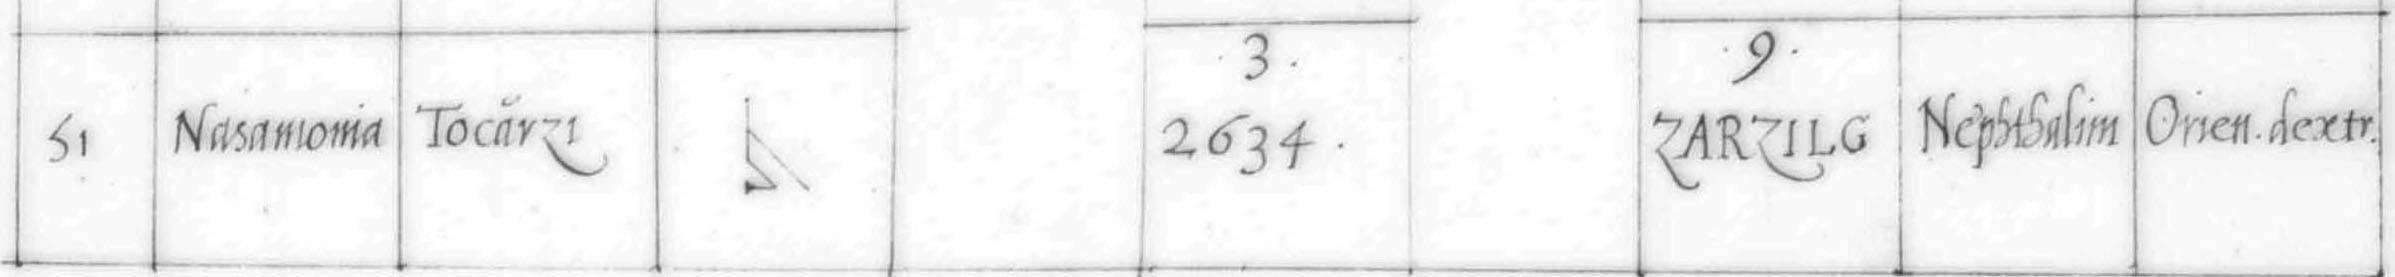 51 Nasamonia Tocărzi 3. 2634. .9. ZARZILG Nephthalim Orien. dextr.